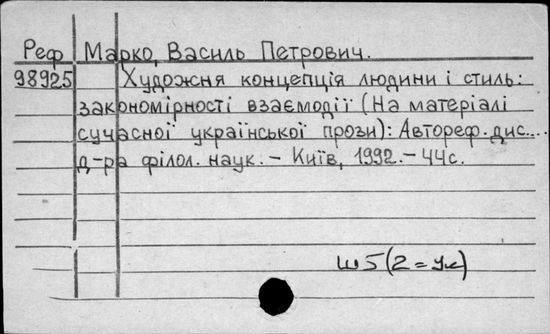 Реф Марко, Василь Петрович.
98925 Художня концепція людини і стиль:
закономірності взаємодії (На матеріалі
сучасної української прози): Автореф. дис. ...
д-ра філол. наук. – Київ, 1992. – 44с.
Ш5(2=Ук)